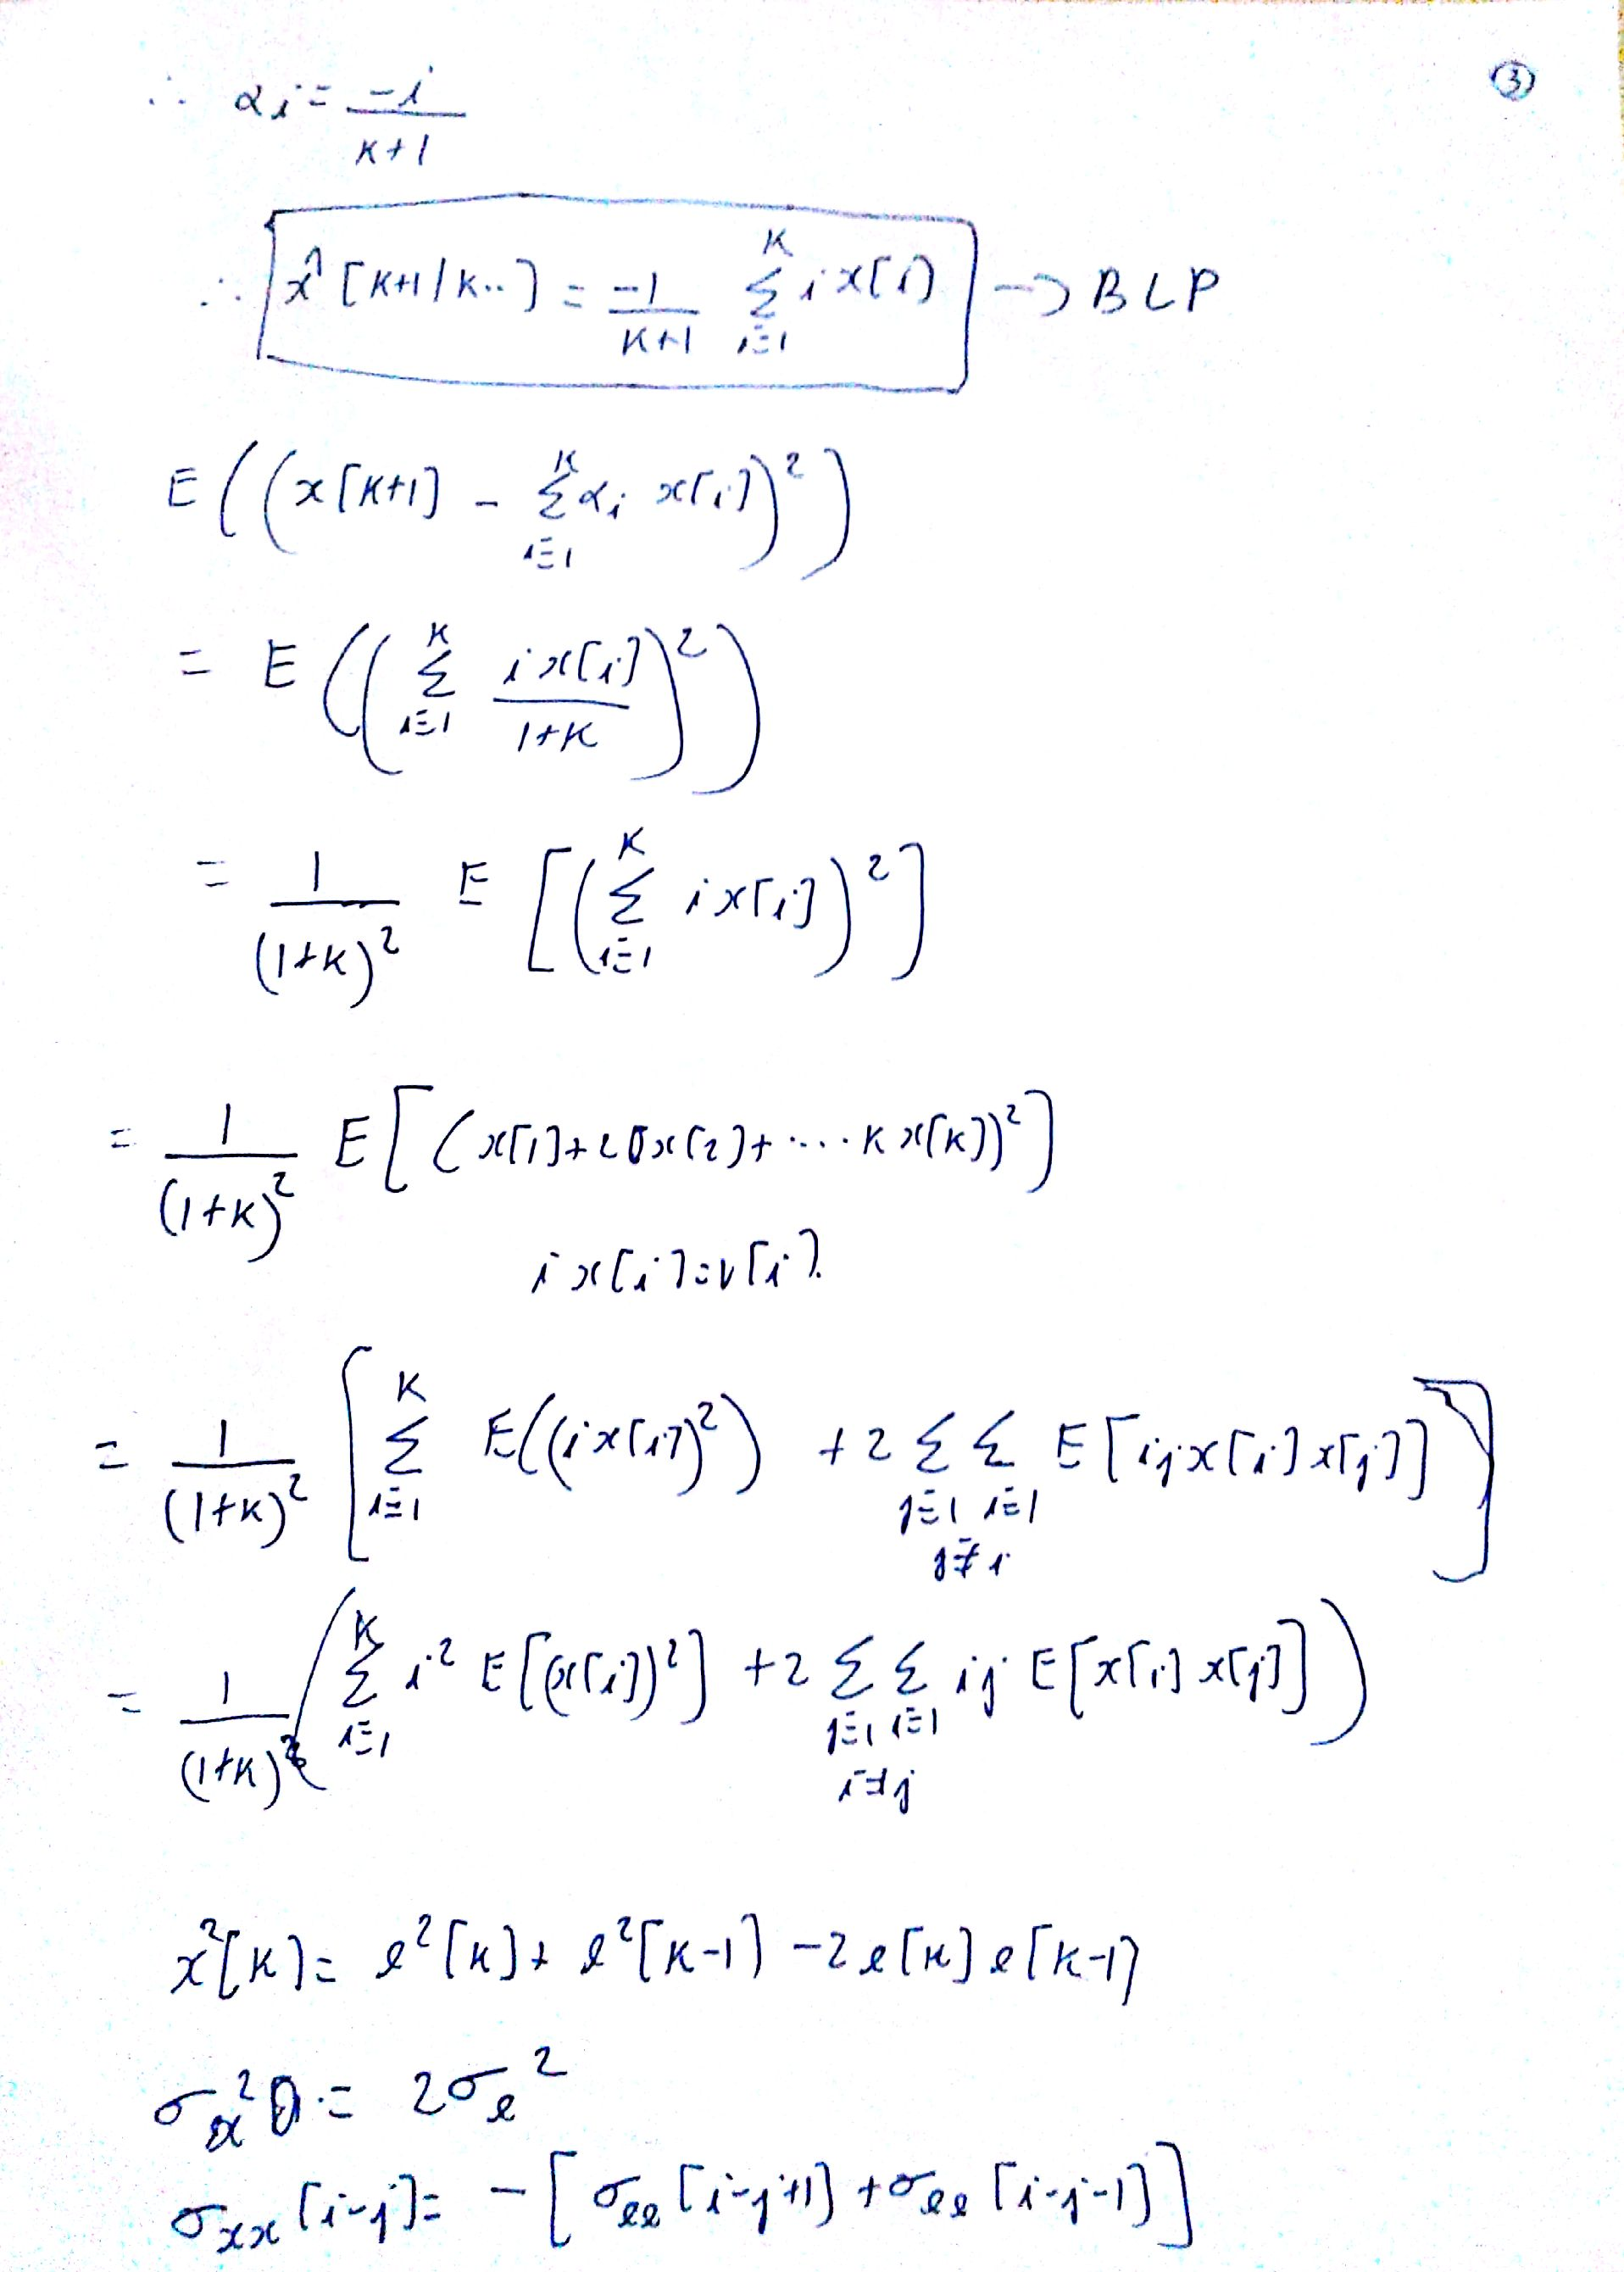 ③
∴ αi = -i/(K+1)
∴ x̂[K+1/K..] = -1/(K+1) Σ_{i=1}^{K} i x[i] → BLP
E((x[K+1] - Σ_{i=1}^{K} αi x[i])²)
= E((Σ_{i=1}^{K} i x[i]/(1+K))²)
= 1/(1+K)² E[(Σ_{i=1}^{K} i x[i])²]
= 1/(1+K)² E[(x[1]+2x[2]+....K x[K])²]
i x[i] = v[i].
= 1/(1+K)² [Σ_{i=1}^{K} E((i x[i])²) + 2 Σ_{j=1} Σ_{i=1} E[ij x[i] x[j]]]
j≠i
= 1/(1+K)² (Σ_{i=1}^{K} i² E[(x[i])²] + 2 Σ_{j=1} Σ_{i=1} ij E[x[i] x[j]])
i≠j
x²[K] = e²[K] + e²[K-1] - 2e[K] e[K-1]
σ_x² = 2σ_e²
σ_xx[i-j] = -[σ_ee[i-j+1] + σ_ee[i-j-1]]